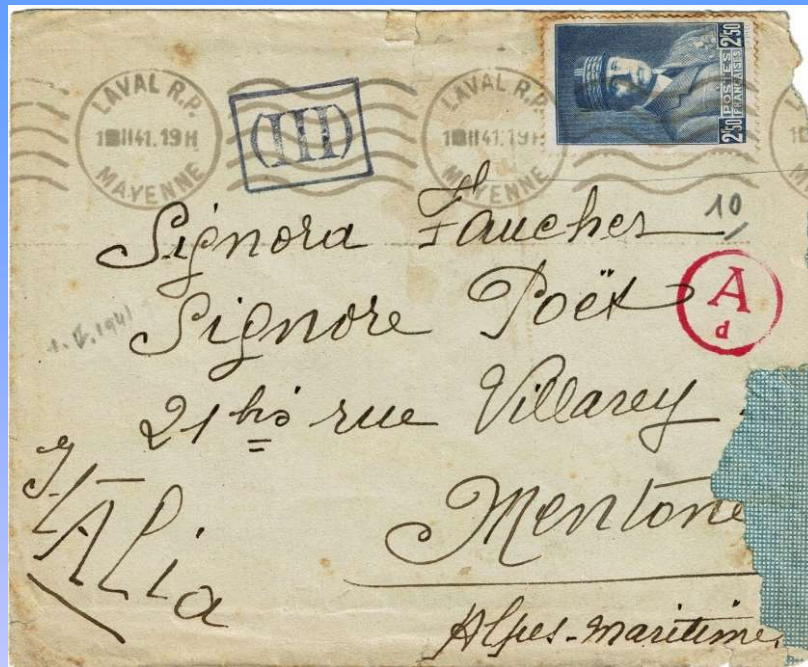 LAVAL R.P.
1 II 41. 19 H
MAYENNE
(III)
LAVAL R.P.
1 II 41. 19 H
MAYENNE
2F50 POSTES FRANÇAISES 2F50
10
Signora Faucher
Signore Poët
A
d
1. II. 1941
21 bis rue Villarey
Mentone
ITALia
Alpes-maritime